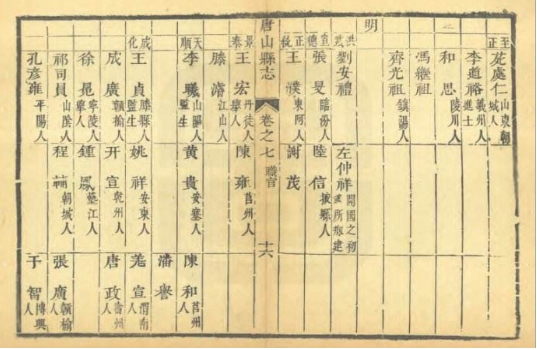 至正 處仁 山東朝城人
李道裕 義州人進士
和思 陵川人
馮繼祖
齊光祖 人
明
洪武 劉安禮 左仲祥 開國之初 所 建
宣德 張旻 臨汾人 陸信 縣人
正統 王濮 東阿人 謝茂
唐山縣志 卷之七 職官 十六
景泰 王宏 丹徒人舉人 陳雍 莒州人
滕濬 江山人
天順 李 山陽人監生 黃貴 人 陳和 莒州人
潘譽
成化 王貞 滕縣人監生 姚祥 安東人 羌宣 渭南人
成廣 贛榆人 开宣 乾州人 唐政 州人
徐 寧陵人舉人 鍾鳳 墊江人
祁司員 山陰人 程 朝城人 張廣 贛榆人
孔彥雍 平陽人 于智 博興人